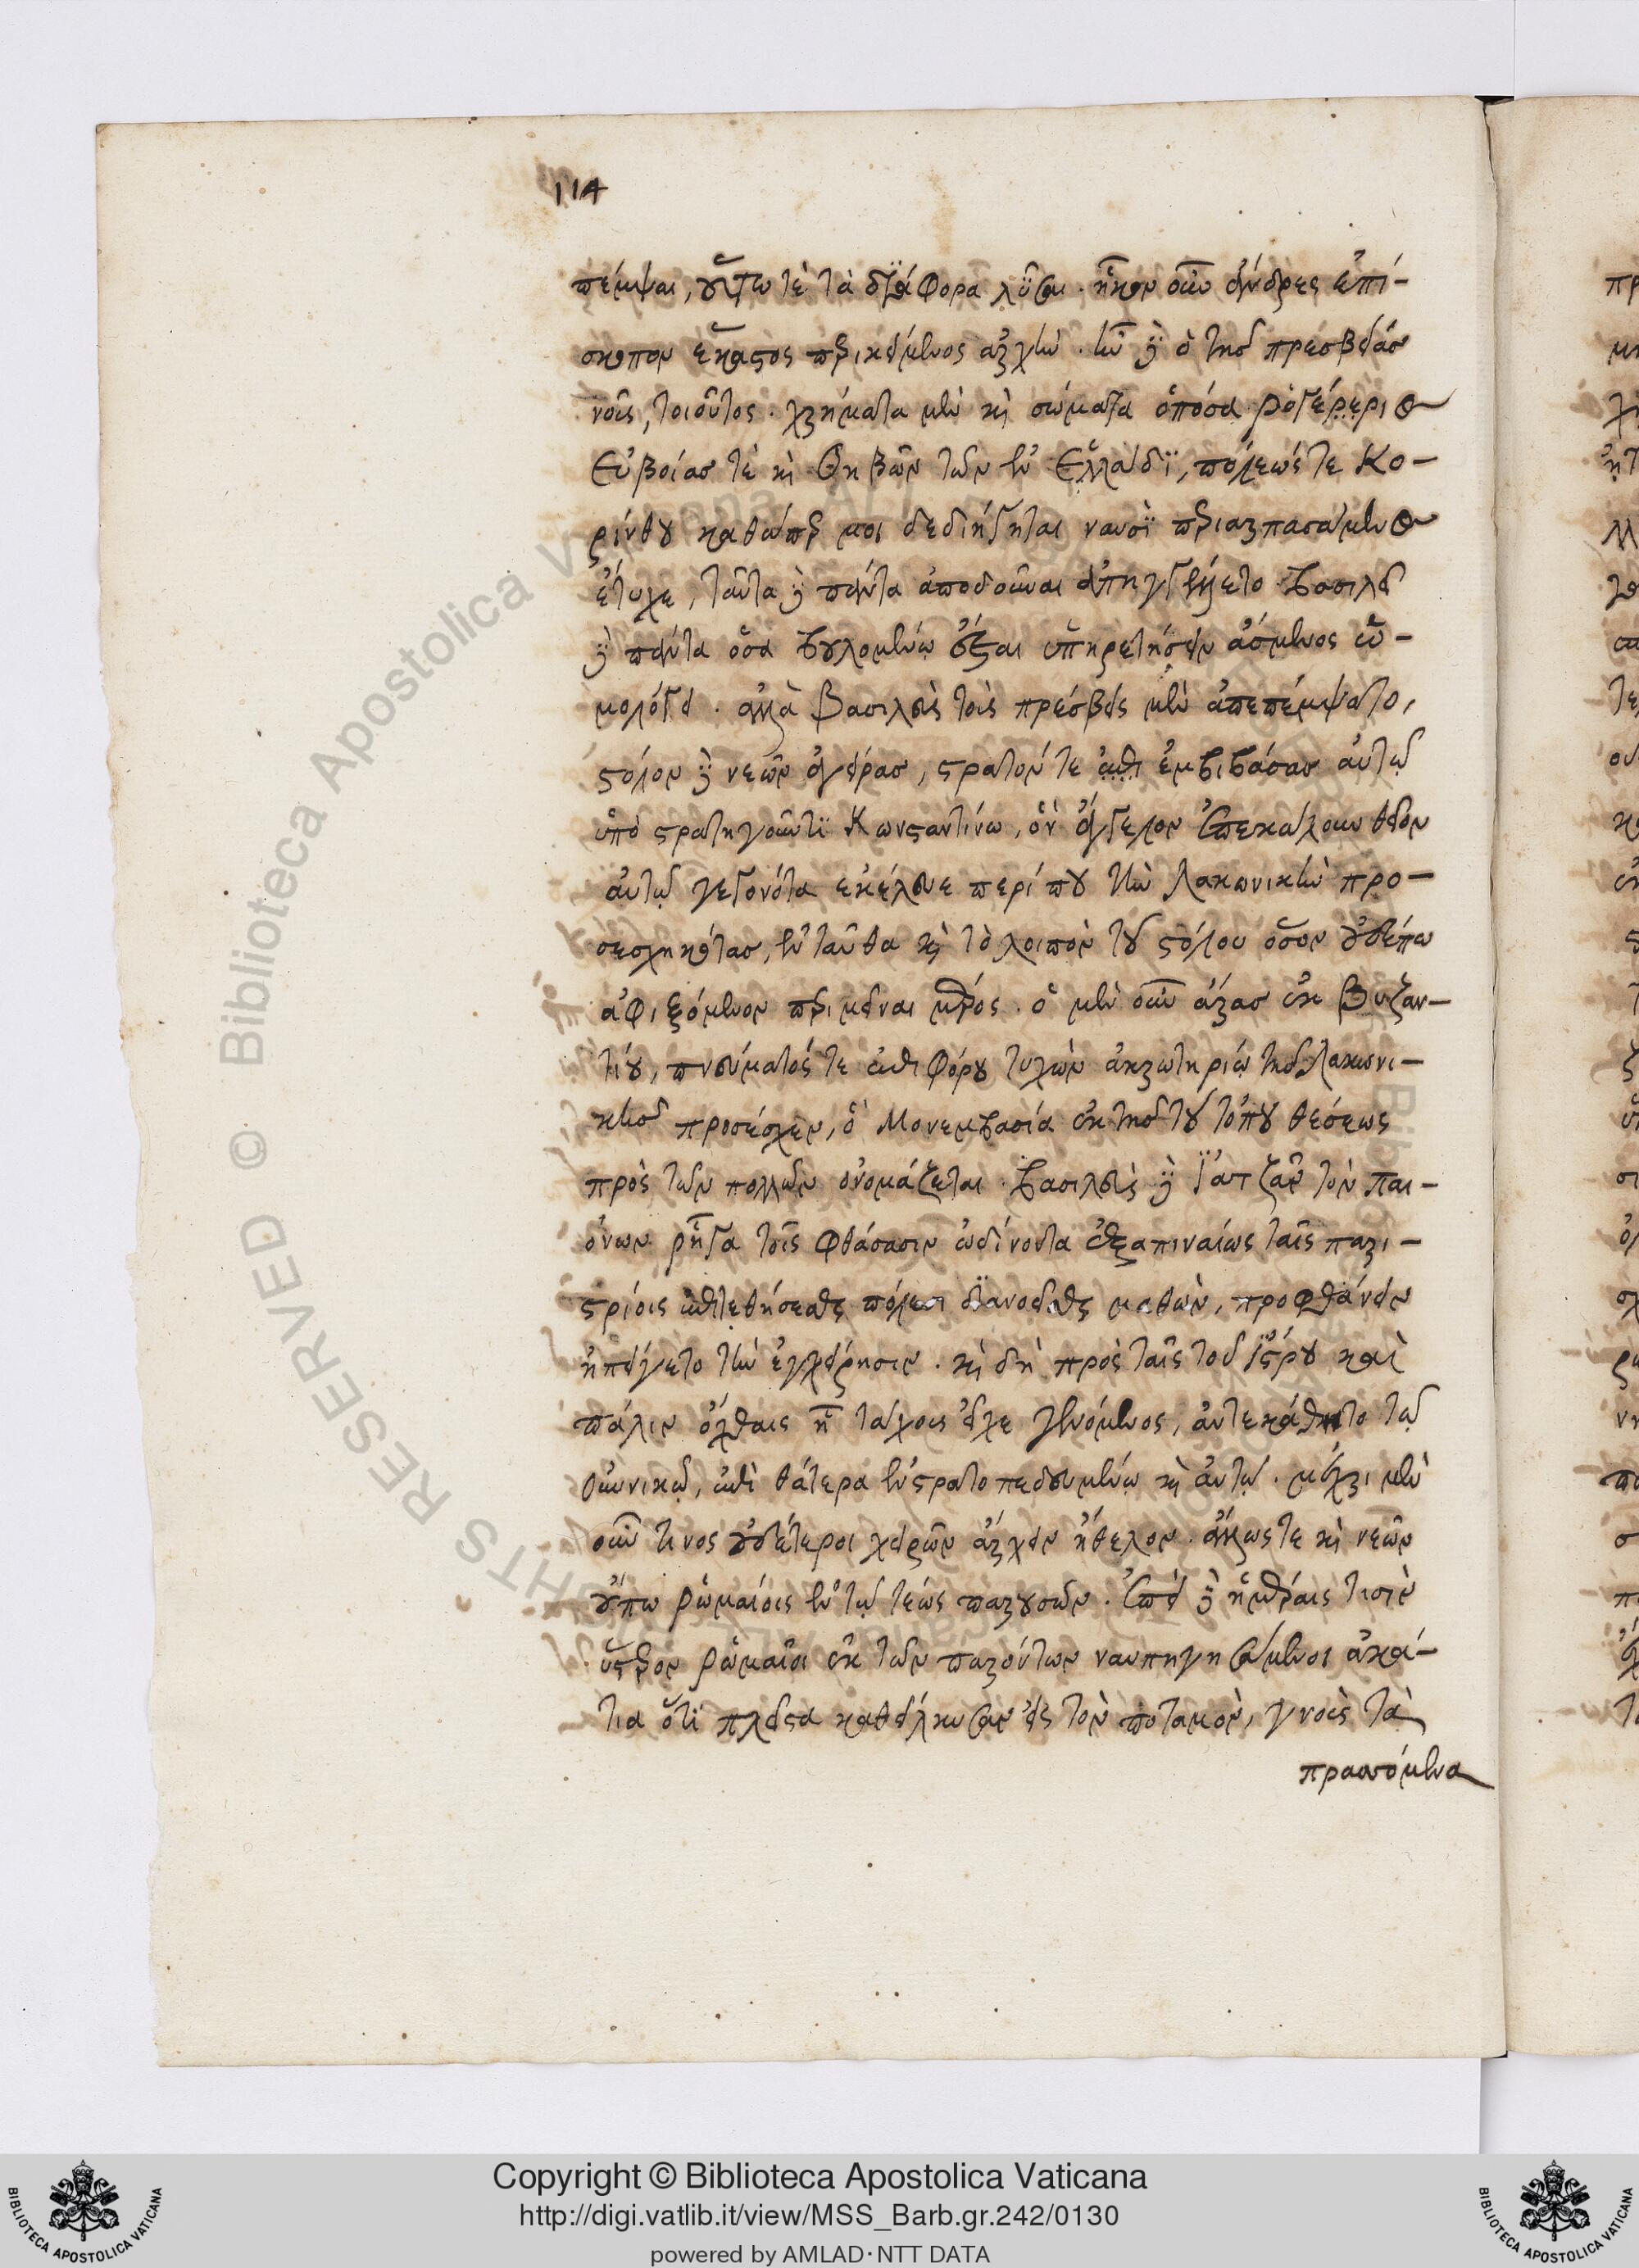 114
πέμψαι, οὕτω τὲ τὰ διάφορα λῦσαι. ἧκον οὖν ἄνδρες ἐπί-
σκοπον ἕκαστος περικείμενος ἀρχήν. ἦν δὲ ὁ τῆς πρεσβείας
νοῦς, τοιοῦτος. χρήματα μὲν καὶ σώματα ὁπόσα Ῥογέρεριος
Εὐβοίας τὲ καὶ Θηβῶν τῶν ἐν Ἑλλάδϊ, πόλεώς τε Κο-
ρίνθου καθάπερ μοι δεδιήγηται ναυσὶ περιαρπασάμενος
ἔτυχε, ταῦτα δὲ πάντα ἀποδοῦναι ἐπηγγέλλετο βασιλεῖ
δὲ πάντα ὅσα βουλομένῳ δόξαι ὑπηρετήσειν ἀσμένως ὡ-
μολόγει. ἀλλὰ βασιλεὺς τοὺς πρέσβεις μὲν ἀπεπέμψατο,
στόλον δὲ νεῶν ἀγείρας, στρατόν τε ἐπι ἐμβιβάσας αὐτῷ
ὑπὸ στρατηγοῦντϊ Κωνσταντίνω, ὃν ἄγγελον ἐπεκάλουν θεῖον
αὐτῷ γεγονότα ἐκέλευε περί που τὴν Λακωνικὴν προ-
σεσχηκότας, ἐνταῦθα καὶ τὸ λοιπὸν τοῦ στόλου ὅσον οὐδέπω
ἀφιξόμενον περιμεῖναι μέρος. ὁ μὲν οὖν ἄρας ἐκ Βυζαν-
τίου, πνεύματός τε ἐπιφόρου τυχὼν ἀκρωτηρίῳ τῆς Λακωνι-
κῆς προσέσχεν, ὃ Μονεμβασία ἐκ τῆς τοῦ τόπου θέσεως
πρὸς τῶν πολλῶν ὀνομάζεται. βασιλεὺς δὲ Ἰατζᾶν τὸν Παι-
όνων ῥῆγα τοῖς φθάσασιν ὠδίνοντα ἐξαπιναίως ταῖς παρι-
στρίοις ἐπιτεθήσεσθαι πόλεσι διανοεῖσθαι μαθὼν, προφθάνειν
ἠπείγετο τὴν ἐγχείρησιν. καὶ δὴ πρὸς ταῖς τοῦ Ἴστρου καὶ
πάλιν ὄχθαις ᾗ τάχους εἶχε γενόμενος, ἀντεκάθητο τῷ
Οὐννικῷ, ἐπὶ θάτερα ἐνστρατοπεδευμένῳ καὶ αὐτῷ. μέχρι μὲν
οὖν τινος οὐδέτεροι χειρῶν ἄρχειν ἤθελον. ἄλλως τε καὶ νεῶν
οὔπω Ῥωμαίοις ἐν τῷ τέως παρουσῶν. ἐπεὶ δὲ ἡμέραις τισὶν
ὕστερον Ῥωμαῖοι ἐκ τῶν παρόντων ναυπηγησάμενοι ἀκά-
τια ὅτϊ πλεῖστα καθείλκυσαν εἰς τὸν ποταμὸν, γνοὺς τὰ
πραττόμενα